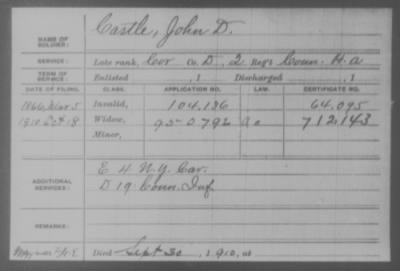 NAME OF SOLDIER: Castle, John D.
SERVICE: Late rank, Cor Co. D, 2 Reg't Conn. H. a
TERM OF SERVICE: Enlisted , 1 Discharged , 1
DATE OF FILING. CLASS. APPLICATION NO. LAW. CERTIFICATE NO.
1866, Mar 5 Invalid, 104,186 64,095
1910 Oct 18 Widow, 950792 712,143
Minor,
ADDITIONAL SERVICES: E 4 N.Y. Cav.
D 19 Conn. Inf
REMARKS:
Died Sept 30, 1910, at